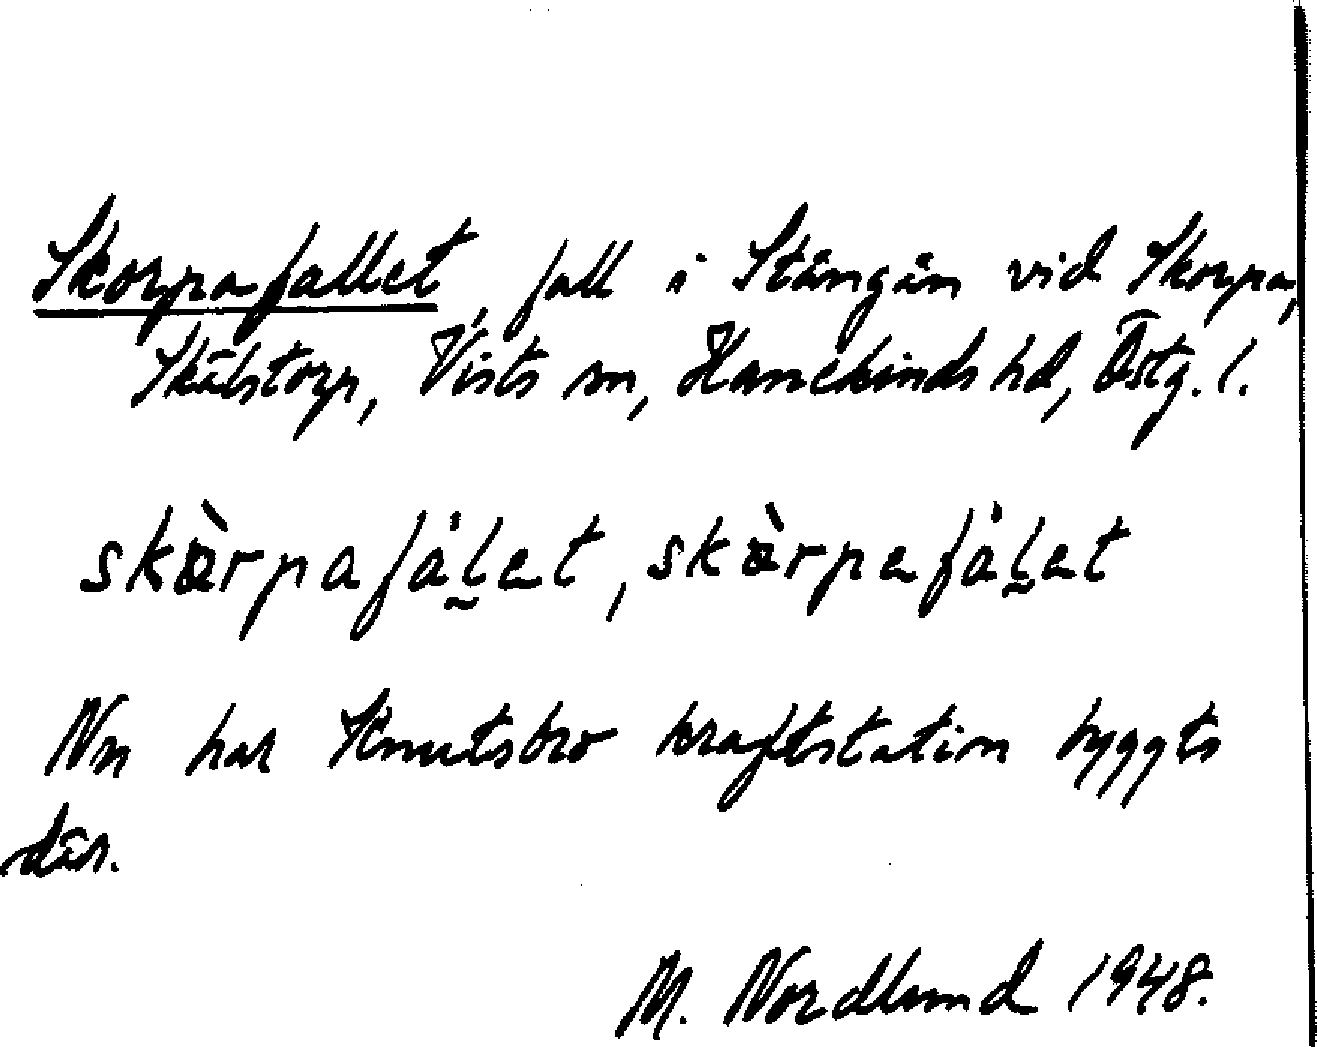 Skorpafallet, fall i Stångån vid Skorpa,
Skälstorp, Vists sn, Hanekinds hd, Östg. l.
skàrpafȧl̰et, skàrpefȧl̰et
Nu har Knutsbro kraftstation byggts
där.
M. Nordlund 1948.